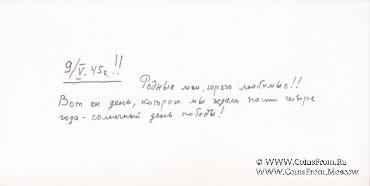 9/V.45г.!!
Родные мои, горячо любимые!!
Вот он день, которого мы ждали почти четыре
года - солнечный день победы!
© www.CoinsFrom.Ru
www.CoinsFrom.Moscow